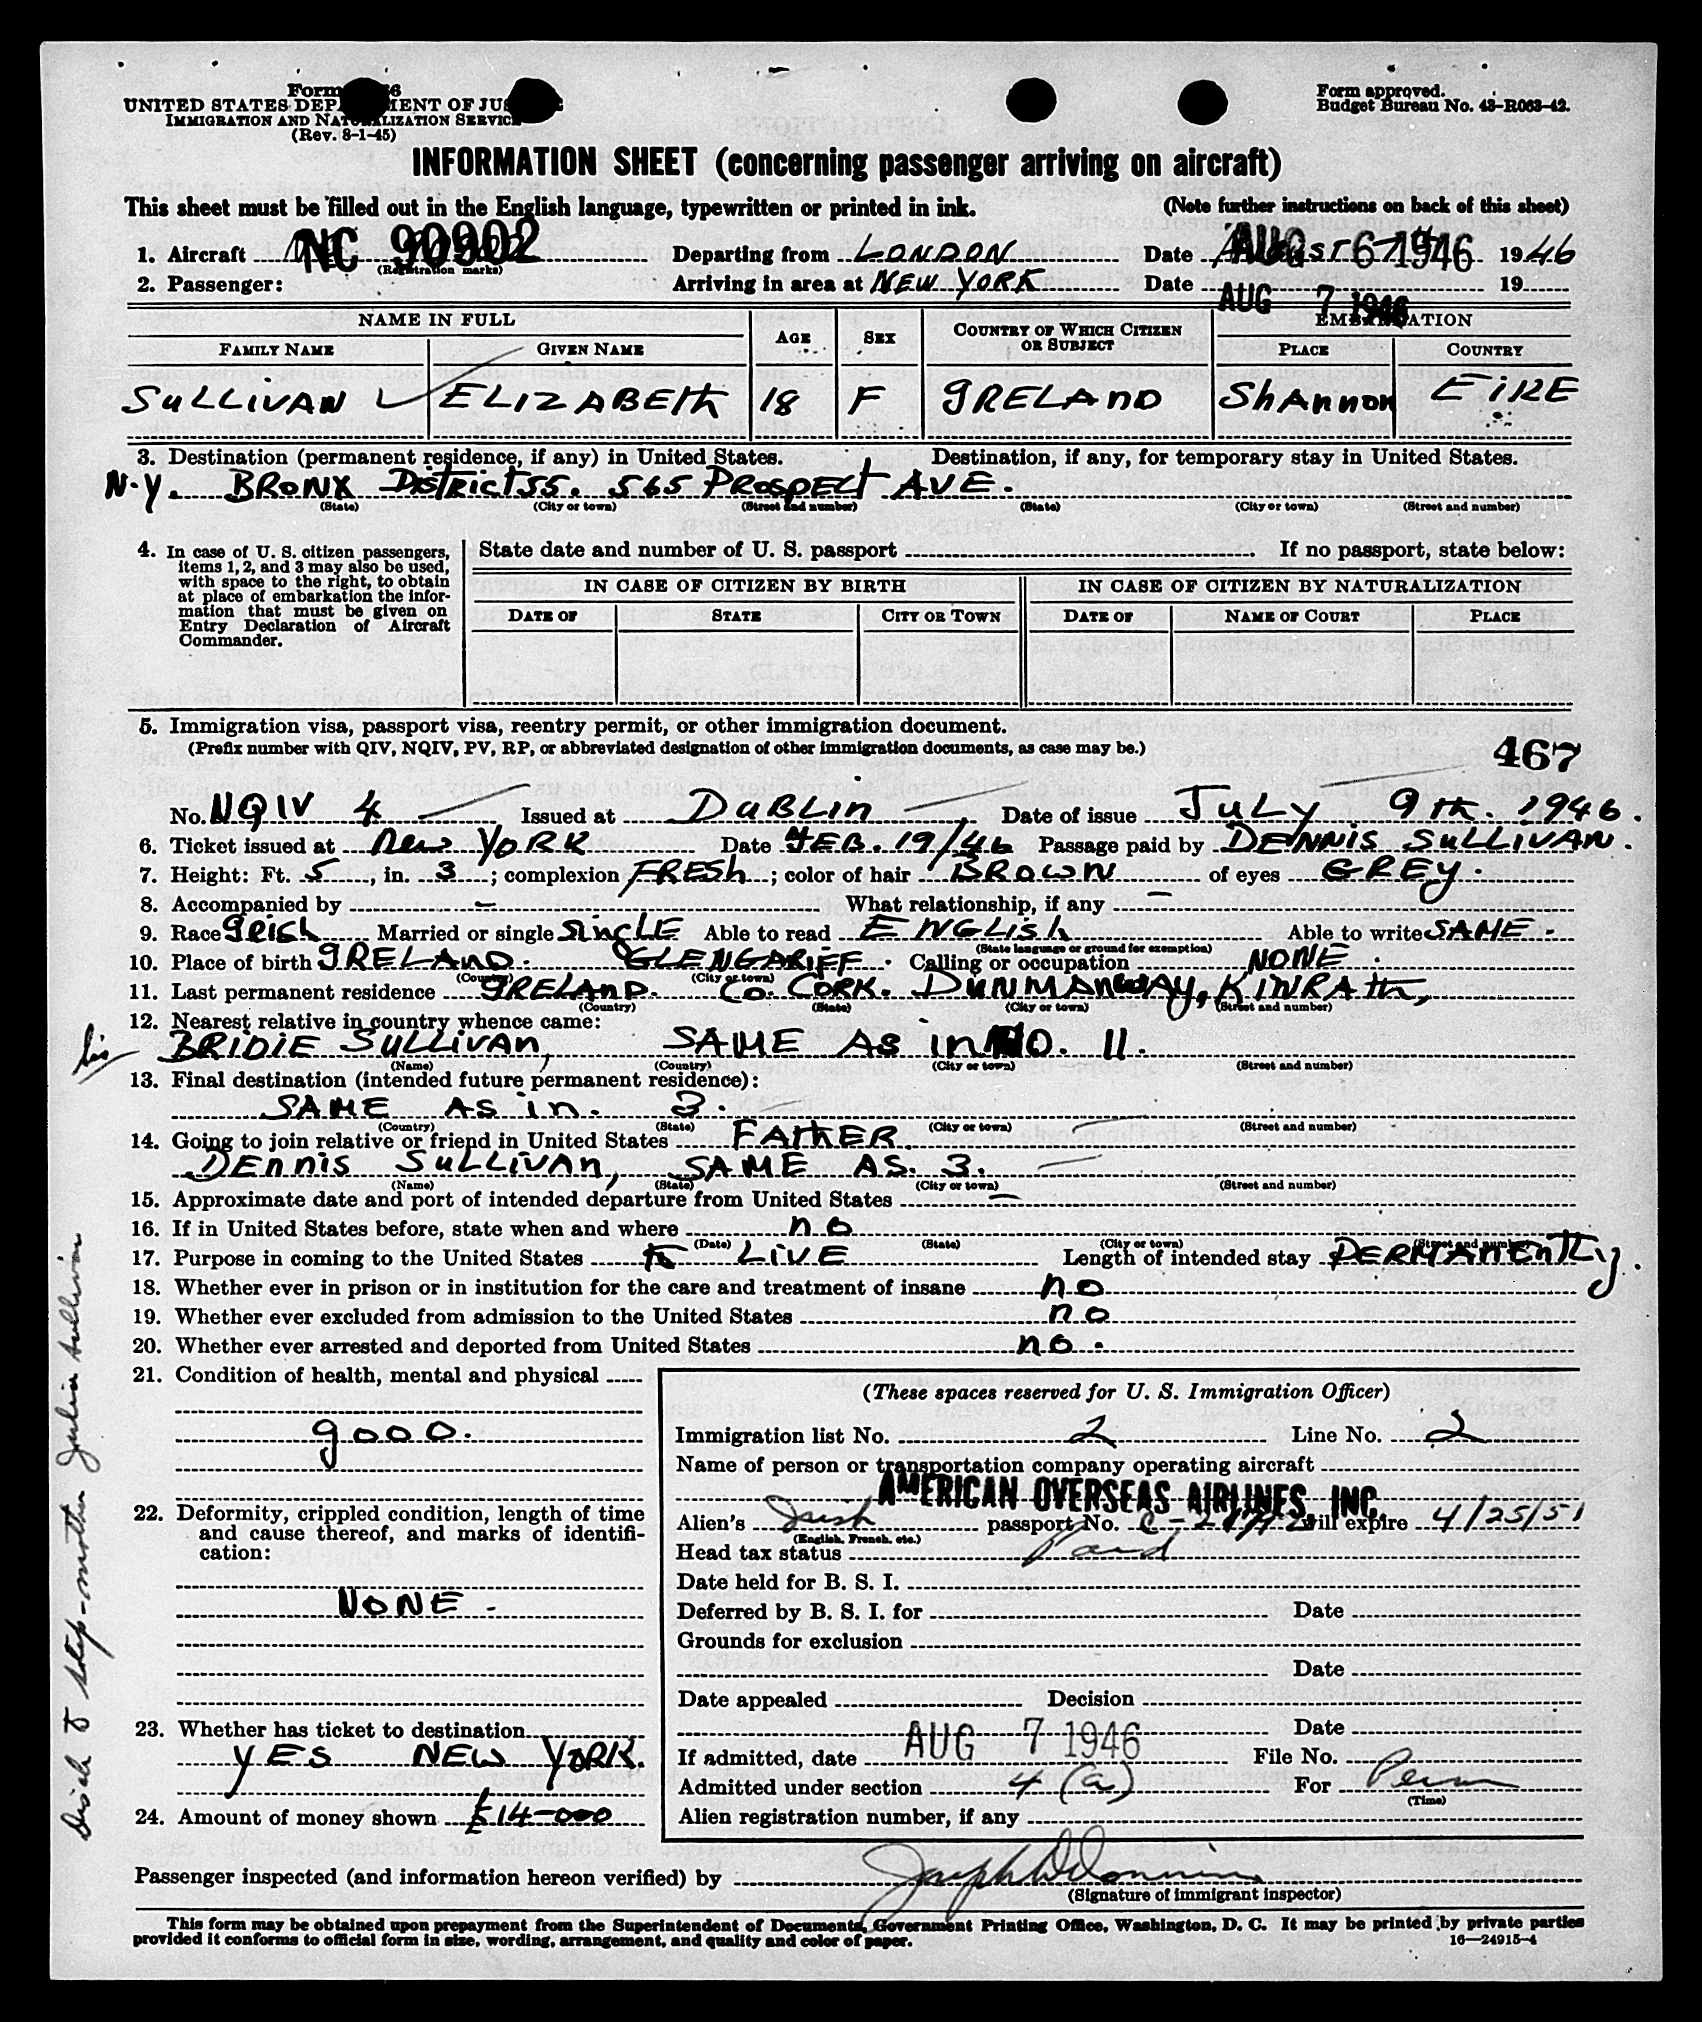 Form 6
UNITED STATES DEP MENT OF JUS
IMMIGRATION AND NATURALIZATION SERVICE
(Rev. 8-1-45)
Form approved.
Budget Bureau No. 43-R063-42.
INFORMATION SHEET (concerning passenger arriving on aircraft)
This sheet must be filled out in the English language, typewritten or printed in ink. (Note further instructions on back of this sheet)
1. Aircraft NC 90902 (Registration marks) Departing from LONDON Date AUG 6 1946 1946
2. Passenger: Arriving in area at NEW YORK Date AUG 7 1946 19
NAME IN FULL AGE SEX COUNTRY OF WHICH CITIZEN OR SUBJECT EMBARKATION
FAMILY NAME GIVEN NAME PLACE COUNTRY
SULLIVAN ELIZABETH 18 F IRELAND SHANNON EIRE
3. Destination (permanent residence, if any) in United States. Destination, if any, for temporary stay in United States.
N.Y. BRONX DISTRICT 55. 565 PROSPECT AVE.
(State) (City or town) (Street and number) (State) (City or town) (Street and number)
4. In case of U. S. citizen passengers, items 1, 2, and 3 may also be used, with space to the right, to obtain at place of embarkation the information that must be given on Entry Declaration of Aircraft Commander.
State date and number of U. S. passport If no passport, state below:
IN CASE OF CITIZEN BY BIRTH IN CASE OF CITIZEN BY NATURALIZATION
DATE OF STATE CITY OR TOWN DATE OF NAME OF COURT PLACE
5. Immigration visa, passport visa, reentry permit, or other immigration document.
(Prefix number with QIV, NQIV, PV, RP, or abbreviated designation of other immigration documents, as case may be.)
467
No. NQIV 4 Issued at DUBLIN Date of issue JULY 9TH. 1946.
6. Ticket issued at NEW YORK Date FEB. 19/46 Passage paid by DENNIS SULLIVAN.
7. Height: Ft. 5, in. 3; complexion FRESH; color of hair BROWN of eyes GREY.
8. Accompanied by - What relationship, if any -
9. Race IRISH Married or single SINGLE Able to read ENGLISH Able to write SAME.
(State language or ground for exemption)
10. Place of birth IRELAND. GLENGARIFF. Calling or occupation NONE.
(Country) (City or town)
11. Last permanent residence IRELAND. CO. CORK. DUNMANWAY, KINRATH,
(Country) (State) (City or town) (Street and number)
12. Nearest relative in country whence came:
sis BRIDIE SULLIVAN, SAME AS IN NO. 11.
(Name) (Country) (City or town) (Street and number)
13. Final destination (intended future permanent residence):
SAME AS IN. 3.
(Country) (State) (City or town) (Street and number)
14. Going to join relative or friend in United States FATHER.
DENNIS SULLIVAN, SAME AS. 3.
(Name) (State) (City or town) (Street and number)
15. Approximate date and port of intended departure from United States -
16. If in United States before, state when and where NO
(Date) (State) (City or town) (Street and number)
17. Purpose in coming to the United States TO LIVE Length of intended stay PERMANENTLY.
18. Whether ever in prison or in institution for the care and treatment of insane NO
19. Whether ever excluded from admission to the United States NO
20. Whether ever arrested and deported from United States NO.
21. Condition of health, mental and physical
GOOD.
22. Deformity, crippled condition, length of time and cause thereof, and marks of identification:
NONE-
23. Whether has ticket to destination
YES NEW YORK.
24. Amount of money shown £14-0-0
(These spaces reserved for U. S. Immigration Officer)
Immigration list No. 2 Line No. 2
Name of person or transportation company operating aircraft
AMERICAN OVERSEAS AIRLINES, INC.
Alien's Irish passport No. will expire 4/25/51
(English, French, etc.)
Head tax status Paid
Date held for B. S. I.
Deferred by B. S. I. for Date
Grounds for exclusion
Date
Date appealed Decision
Date
If admitted, date AUG 7 1946 File No.
Admitted under section 4 (a) For Perm
(Time)
Alien registration number, if any
Passenger inspected (and information hereon verified) by
(Signature of immigrant inspector)
This form may be obtained upon prepayment from the Superintendent of Documents, Government Printing Office, Washington, D. C. It may be printed by private parties
provided it conforms to official form in size, wording, arrangement, and quality and color of paper.
16—24915-4
step-mother Julia Sullivan